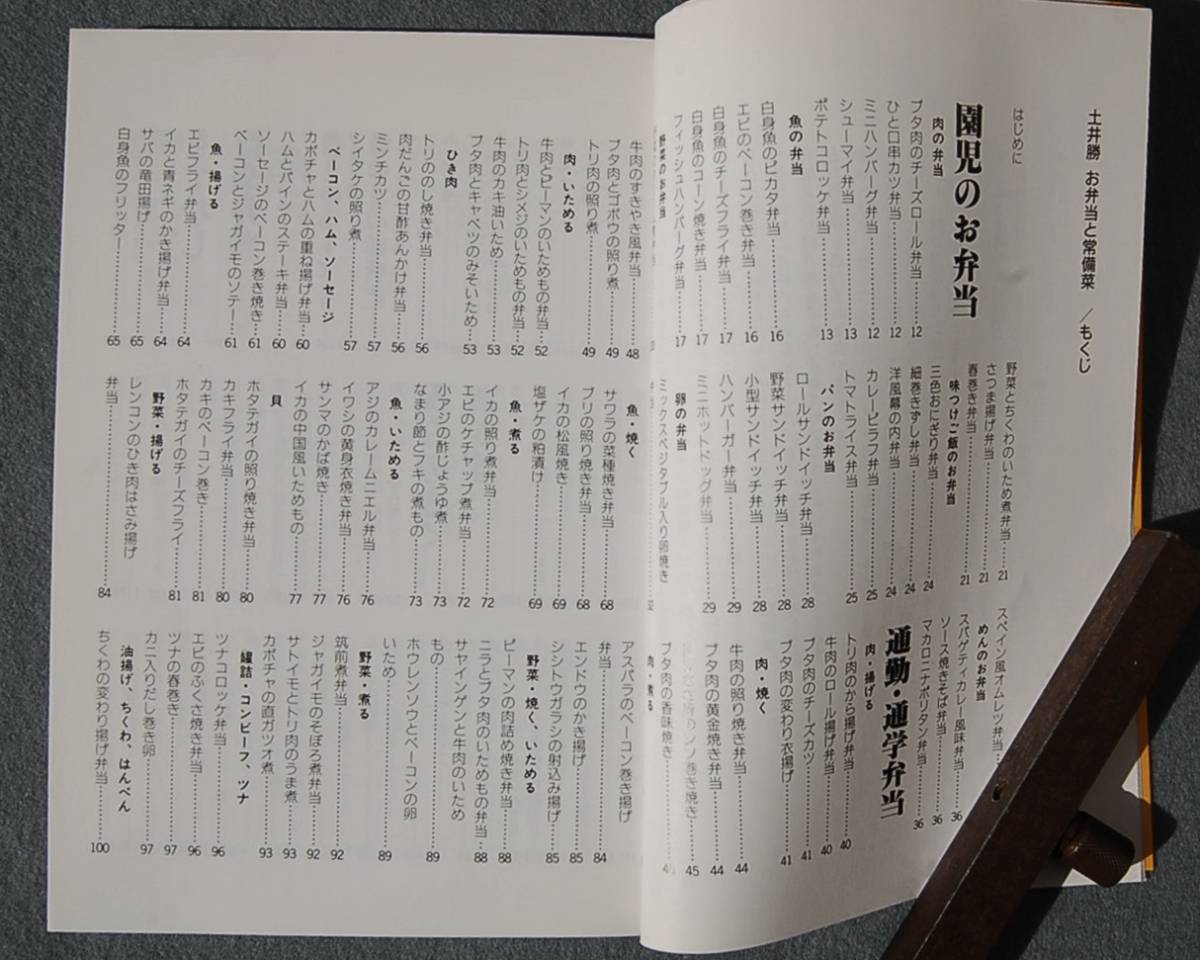 土井勝 お弁当と常備菜 ／もくじ
はじめに
園児のお弁当
肉の弁当
ブタ肉のチーズロール弁当……12
ひと口串カツ弁当……12
ミニハンバーグ弁当……12
シューマイ弁当……13
ポテトコロッケ弁当……13
魚の弁当
白身魚のピカタ弁当……16
エビのベーコン巻き弁当……16
白身魚のチーズフライ弁当……17
白身魚のコーン焼き弁当……17
フィッシュハンバーグ弁当……17
野菜のお弁当
野菜とちくわのいため煮弁当……21
さつま揚げ弁当……21
春巻き弁当……21
味つけご飯のお弁当
三色おにぎり弁当……24
細巻きずし弁当……24
洋風幕の内弁当……24
カレーピラフ弁当……25
トマトライス弁当……25
パンのお弁当
ロールサンドイッチ弁当……28
野菜サンドイッチ弁当……28
小型サンドイッチ弁当……28
ハンバーガー弁当……29
ミニホットドッグ弁当……29
卵の弁当
ミックスベジタブル入り卵焼き
スペイン風オムレツ弁当……
めんのお弁当
スパゲティカレー風味弁当……36
ソース焼きそば弁当……36
マカロニナポリタン弁当……36
通勤・通学弁当
肉・揚げる
トリ肉のから揚げ弁当……40
牛肉のロール揚げ弁当……40
ブタ肉のチーズカツ……41
ブタ肉の変わり衣揚げ……41
肉・焼く
牛肉の照り焼き弁当……44
ブタ肉の黄金焼き弁当……44
シソ巻き焼き……45
ブタ肉の香味焼き……
肉・煮る
牛肉のすきやき風弁当……48
ブタ肉とゴボウの照り煮……49
トリ肉の照り煮……49
肉・いためる
牛肉とピーマンのいためもの弁当……52
トリ肉とシメジのいためもの弁当……52
牛肉のカキ油いため……53
ブタ肉とキャベツのみそいため……53
ひき肉
トリののし焼き弁当……56
肉だんごの甘酢あんかけ弁当……56
ミンチカツ……57
シイタケの照り煮……57
ベーコン、ハム、ソーセージ
カボチャとハムの重ね揚げ弁当……60
ハムとパインのステーキ弁当……60
ソーセージのベーコン巻き焼き……61
ベーコンとジャガイモのソテー……61
魚・揚げる
エビフライ弁当……64
イカと青ネギのかき揚げ弁当……64
サバの竜田揚げ……65
白身魚のフリッター……65
魚・焼く
サワラの菜種焼き弁当……68
ブリの照り焼き弁当……68
イカの松風焼き……69
塩ザケの粕漬け……69
魚・煮る
イカの照り煮弁当……72
エビのケチャップ煮弁当……72
小アジの酢じょうゆ煮……73
なまり節とフキの煮もの……73
魚・いためる
アジのカレームニエル弁当……76
イワシの黄身衣焼き弁当……76
サンマのかば焼き……77
イカの中国風いためもの……77
貝
ホタテガイの照り焼き弁当……80
カキフライ弁当……80
カキのベーコン巻き……81
ホタテガイのチーズフライ……81
野菜・揚げる
レンコンのひき肉はさみ揚げ
弁当……84
アスパラのベーコン巻き揚げ
弁当……84
エンドウのかき揚げ……85
シシトウガラシの射込み揚げ……85
野菜・焼く、いためる
ピーマンの肉詰め焼き弁当……88
ニラとブタ肉のいためもの弁当……88
サヤインゲンと牛肉のいため
もの……89
ホウレンソウとベーコンの卵
いため……89
野菜・煮る
筑前煮弁当……92
ジャガイモのそぼろ煮弁当……92
サトイモとトリ肉のうま煮……93
カボチャの直ガツオ煮……93
罐詰・コンビーフ、ツナ
ツナコロッケ弁当……96
エビのふくさ焼き弁当……96
ツナの春巻き……97
カニ入りだし巻き卵……97
油揚げ、ちくわ、はんぺん
ちくわの変わり揚げ弁当……100